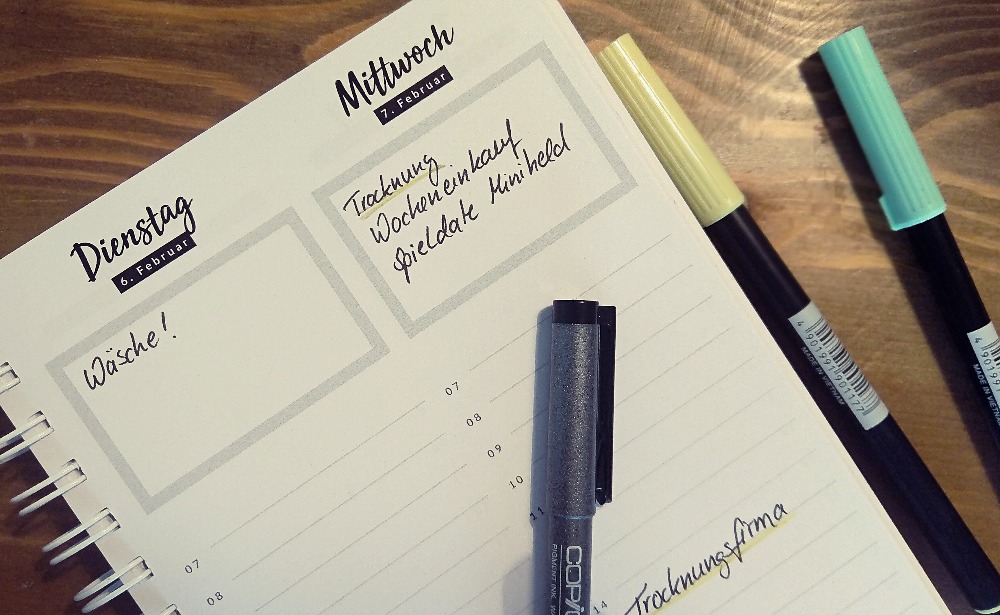 Mittwoch
7. Februar
Trocknung
Wocheneinkauf
Spieldate Miniheld
Dienstag
6. Februar
Wäsche!
07
08
09
10
11
14
Trocknungsfirma
07
08
COPIC
PIGMENT INK.
4901991901177
MADE IN VIETNAM
4901991
MADE IN VIETNAM